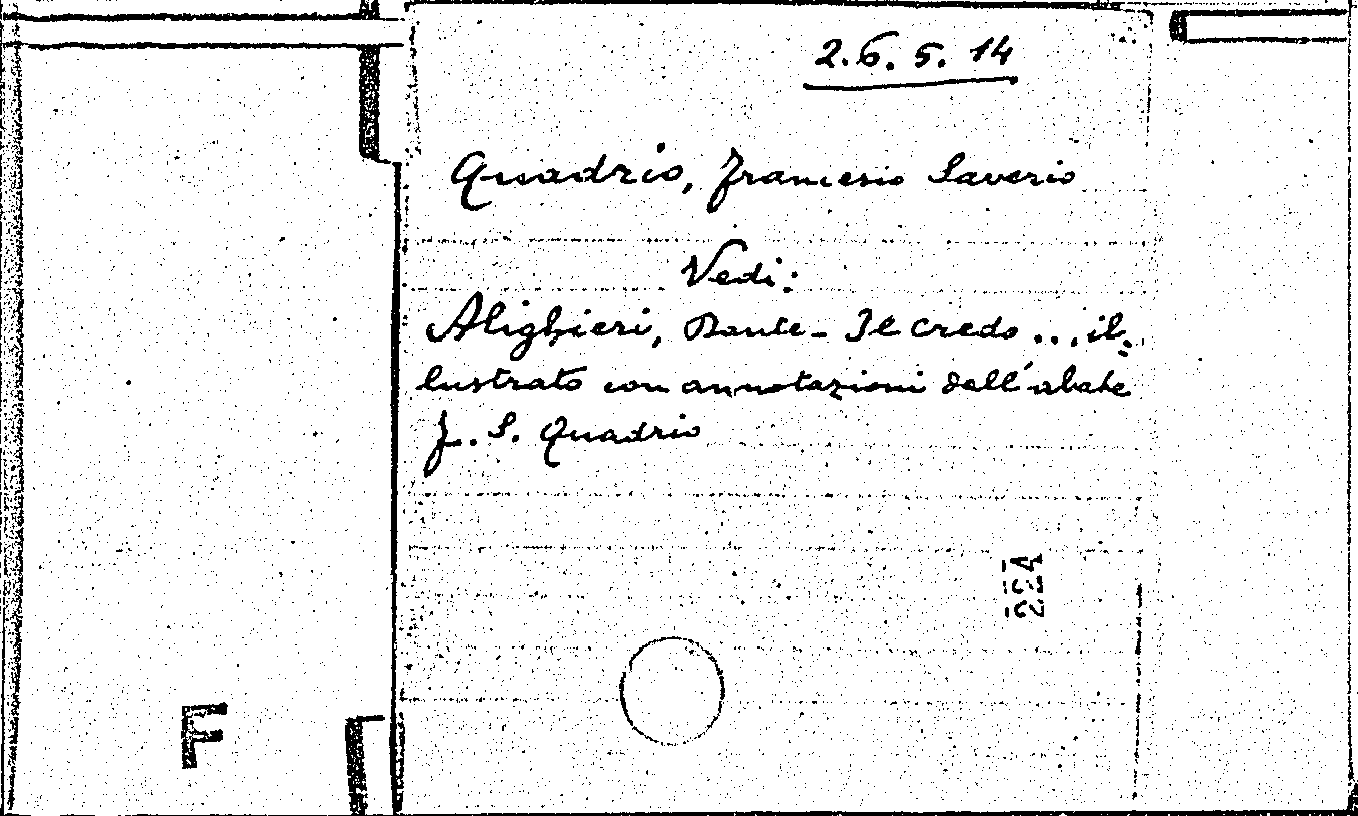 2.6.5.14
Quadrio, Francesco Saverio
Vedi:
Alighieri, Dante - Il Credo ... il-
lustrato con annotazioni dell'abate
F. S. Quadrio
224
F